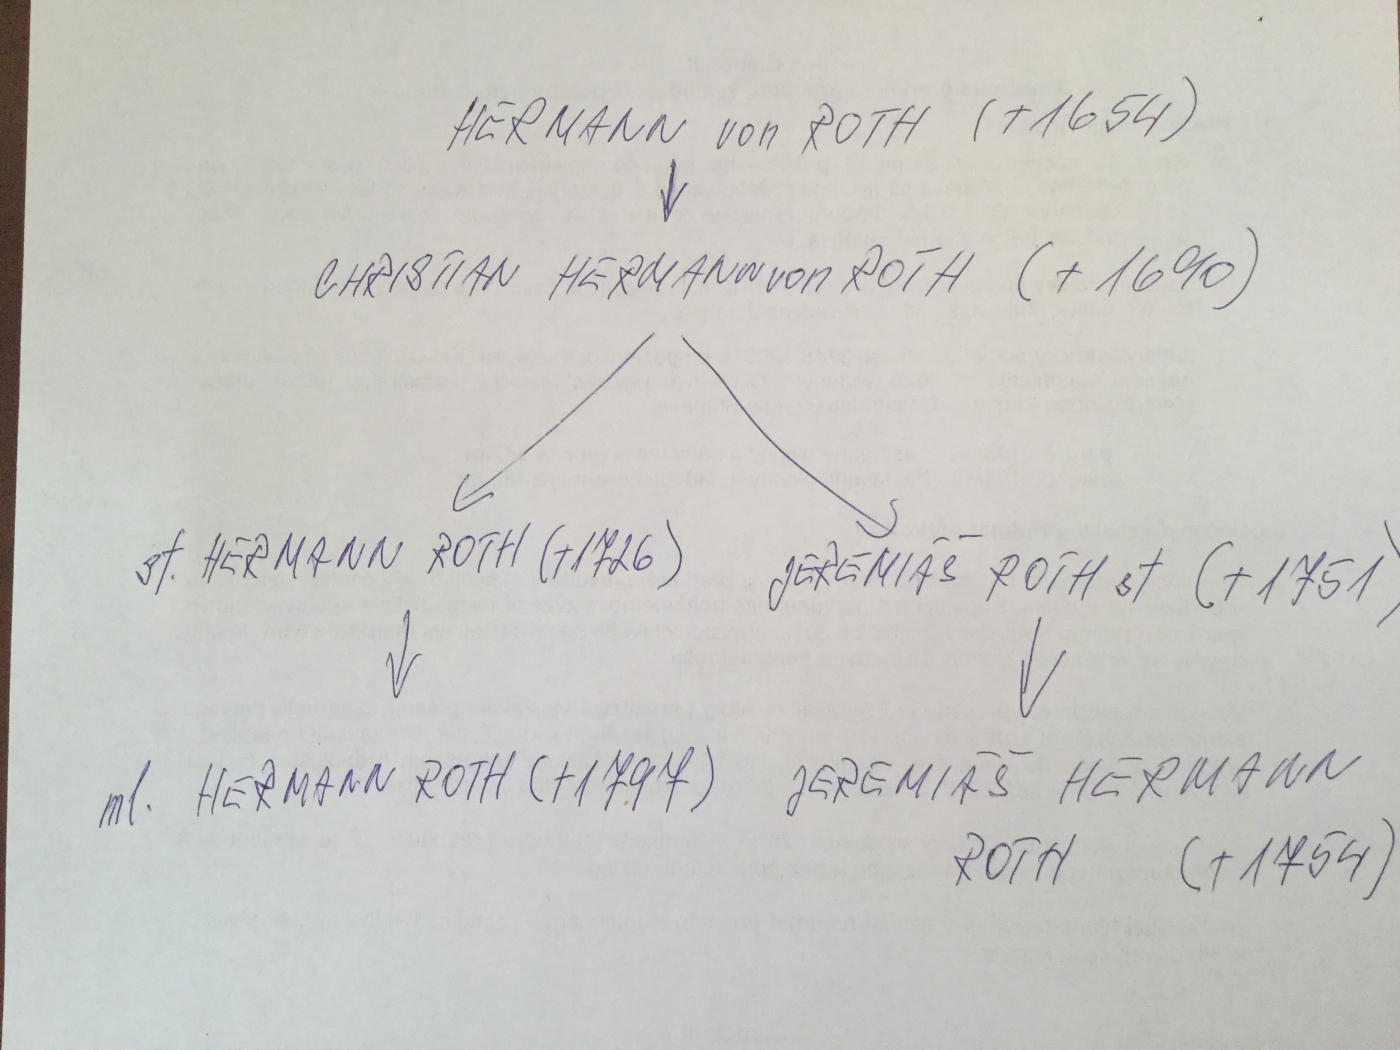 HERMANN von ROTH (+1654)
CHRISTIAN HERMANN von ROTH (+1690)
st. HERMANN ROTH (+1726)
JEREMIÁŠ ROTH st (+1751)
ml. HERMANN ROTH (+1797)
JEREMIÁŠ HERMANN
ROTH (+1754)